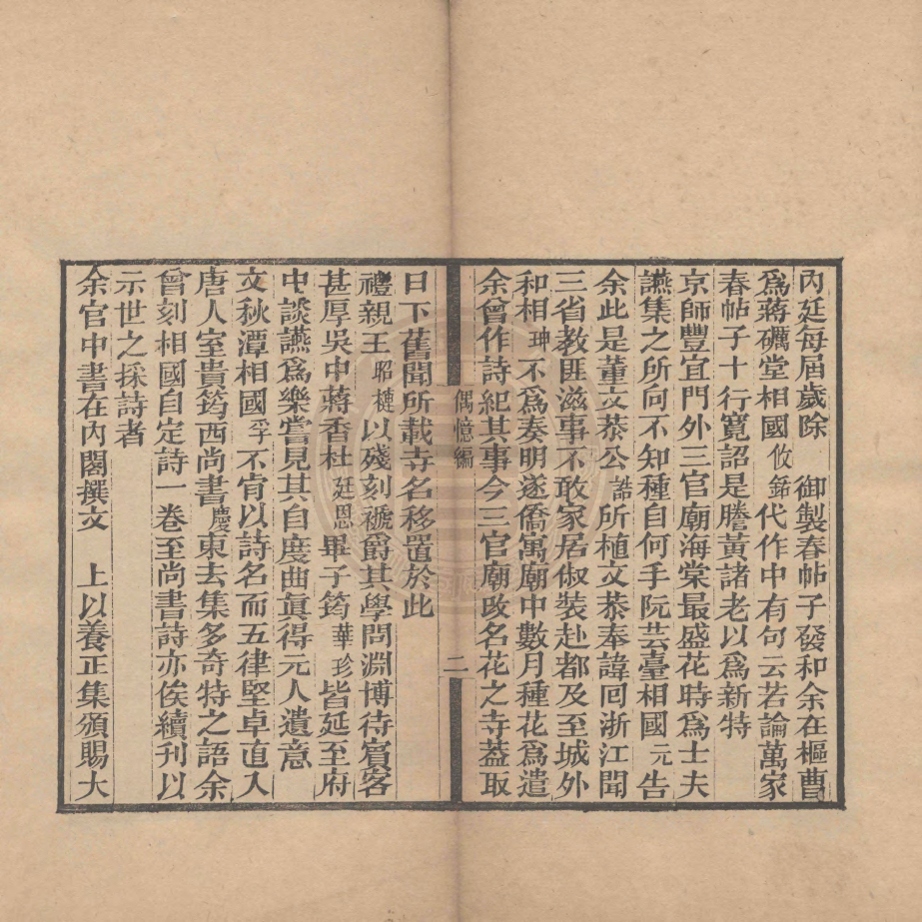 內廷每屆歲除　御製春帖子發和余在樞曹
爲蔣礪堂相國攸銛代作中有句云若論萬家
春帖子十行寬詔是謄黃諸老以爲新特
京師豐宜門外三官廟海棠最盛花時爲士夫
讌集之所向不知種自何手阮芸臺相國元告
余此是董文恭公誥所植文恭奉諱回浙江聞
三省教匪滋事不敢家居俶裝赴都及至城外
和相珅不爲奏明遂僑寓廟中數月種花爲遣
余曾作詩紀其事今三官廟改名花之寺葢取
偶憶編
二
日下舊聞所載寺名移置於此
禮親王昭槤以殘刻褫爵其學問淵博待賓客
甚厚吳中蔣香杜廷恩畢子筠華珍皆延至府
中談讌爲樂嘗見其自度曲眞得元人遺意
文秋潭相國孚不肯以詩名而五律堅卓直入
唐人室貴筠西尚書慶東去集多奇特之語余
曾刻相國自定詩一卷至尚書詩亦俟續刊以
示世之採詩者
余官中書在內閣撰文　上以養正集頒賜大